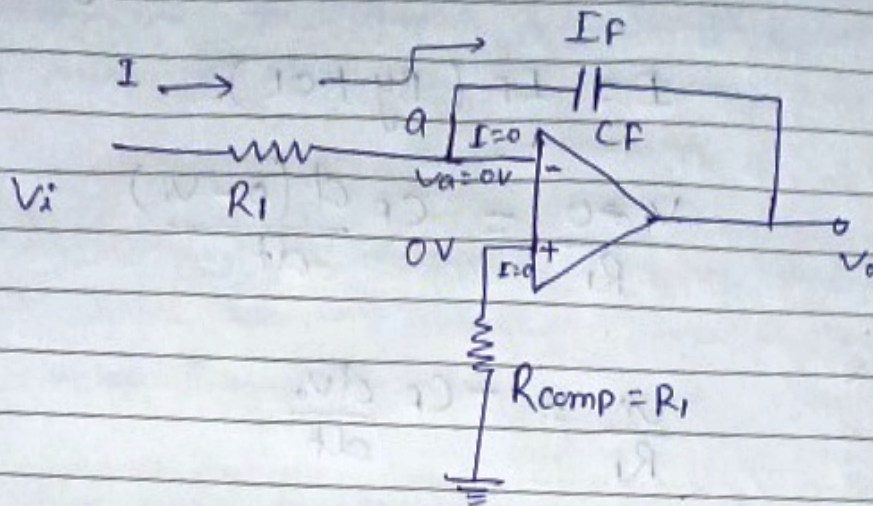 IF
I
a
I=0
CF
Va=0V
-
Vi
R1
0V
+
I=0
Vo
Rcomp = R1